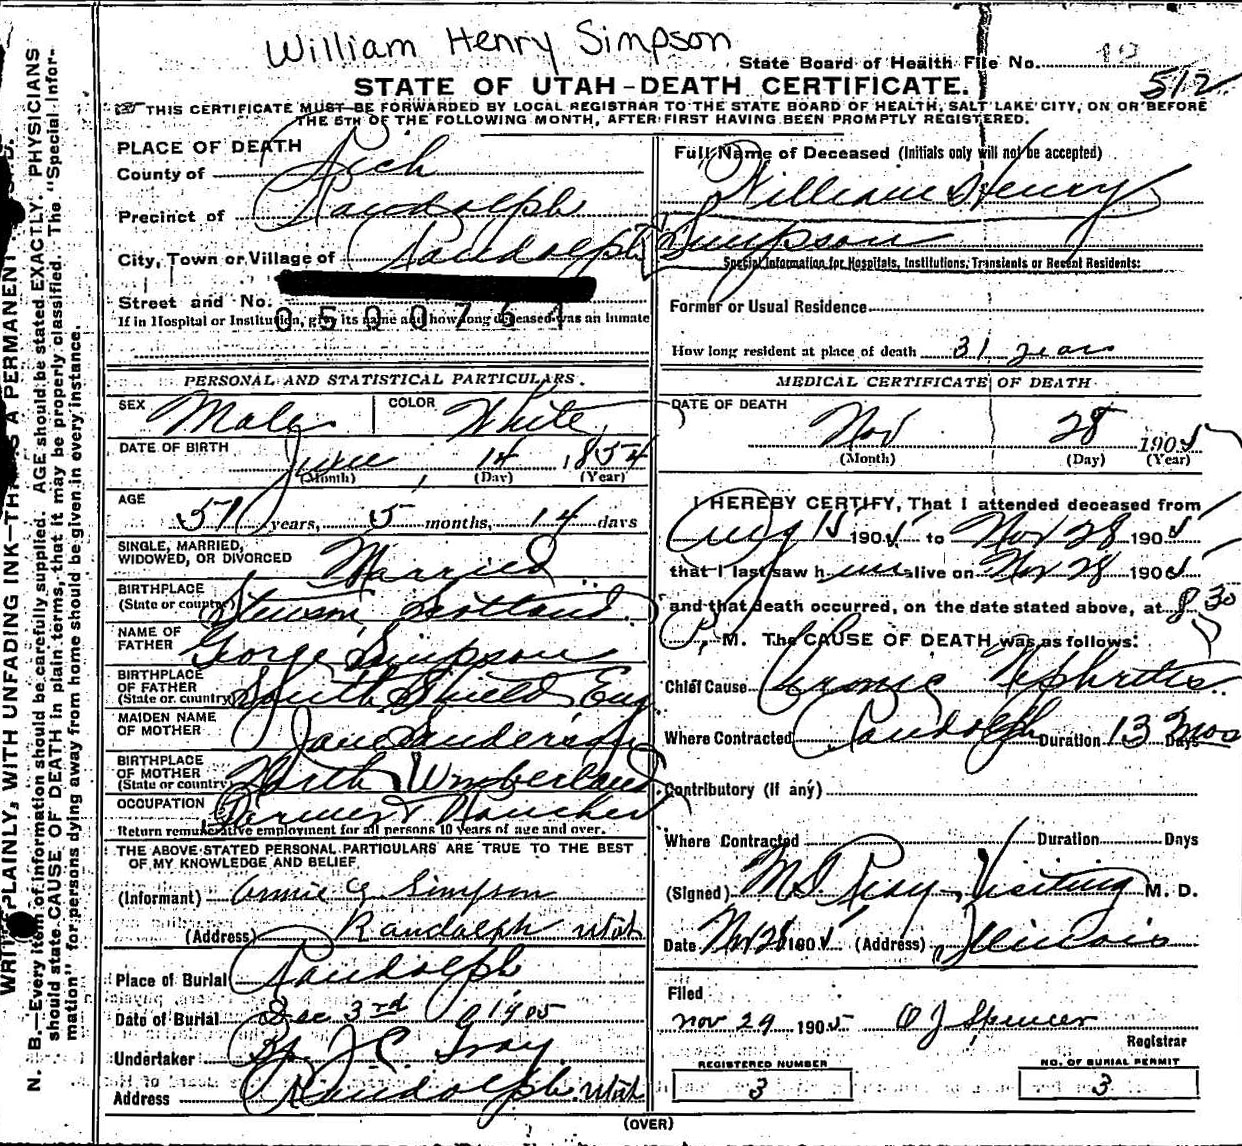 William Henry Simpson
State Board of Health File No.
512
STATE OF UTAH-DEATH CERTIFICATE.
THIS CERTIFICATE MUST BE FORWARDED BY LOCAL REGISTRAR TO THE STATE BOARD OF HEALTH, SALT LAKE CITY, ON OR BEFORE
THE 5TH OF THE FOLLOWING MONTH, AFTER FIRST HAVING BEEN PROMPTLY REGISTERED.
PLACE OF DEATH
County of Rich
Precinct of Randolph
City, Town or Village of Randolph
Street and No.
If in Hospital or Institution, give its name and how long deceased was an inmate
Full Name of Deceased (Initials only will not be accepted)
William Henry
Simpson
Special Information for Hospitals, Institutions, Transients or Recent Residents:
Former or Usual Residence
How long resident at place of death 31 years
PERSONAL AND STATISTICAL PARTICULARS.
SEX Male COLOR White
DATE OF BIRTH June 14 1854
(Month) (Day) (Year)
AGE 51 years, 5 months, 14 days
SINGLE, MARRIED,
WIDOWED, OR DIVORCED Married
BIRTHPLACE
(State or country) Scotland
NAME OF
FATHER George Simpson
BIRTHPLACE
OF FATHER
(State or country) South Shield Eng.
MAIDEN NAME
OF MOTHER Jane Anderson
BIRTHPLACE
OF MOTHER
(State or country) North Umberland
OCCUPATION Farmer & Rancher
Return remunerative employment for all persons 10 years of age and over.
THE ABOVE STATED PERSONAL PARTICULARS ARE TRUE TO THE BEST
OF MY KNOWLEDGE AND BELIEF
(Informant) Annie G Simpson
(Address) Randolph Utah
Place of Burial Randolph
Date of Burial Dec 3rd 1905
Undertaker Bp. J C Gray
Address Randolph Utah
MEDICAL CERTIFICATE OF DEATH
DATE OF DEATH
Nov 28 1905
(Month) (Day) (Year)
I HEREBY CERTIFY, That I attended deceased from
Aug 15 1905 to Nov 28 1905
that I last saw him alive on Nov 28 1905
and that death occurred, on the date stated above, at 8 30
P. M. The CAUSE OF DEATH was as follows:
Chief Cause Cronic Nephretis
Where Contracted Randolph Duration 13 Mos Days
Contributory (if any)
Where Contracted Duration Days
(Signed) Visiting M. D.
Date Nov 28 1905 (Address) Illinois
Filed
Nov 29 1905 O J Spencer
Registrar
REGISTERED NUMBER
3
NO. OF BURIAL PERMIT
3
(OVER)
WRITE PLAINLY, WITH UNFADING INK—THIS IS A PERMANENT
N. B.—Every item of information should be carefully supplied. AGE should be stated EXACTLY. PHYSICIANS
should state CAUSE OF DEATH in plain terms, that it may be properly classified. The "Special Infor-
mation" for persons dying away from home should be given in every instance.